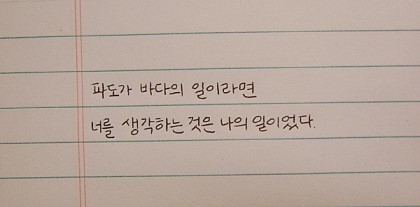 파도가 바다의 일이라면
너를 생각하는 것은 나의 일이었다.